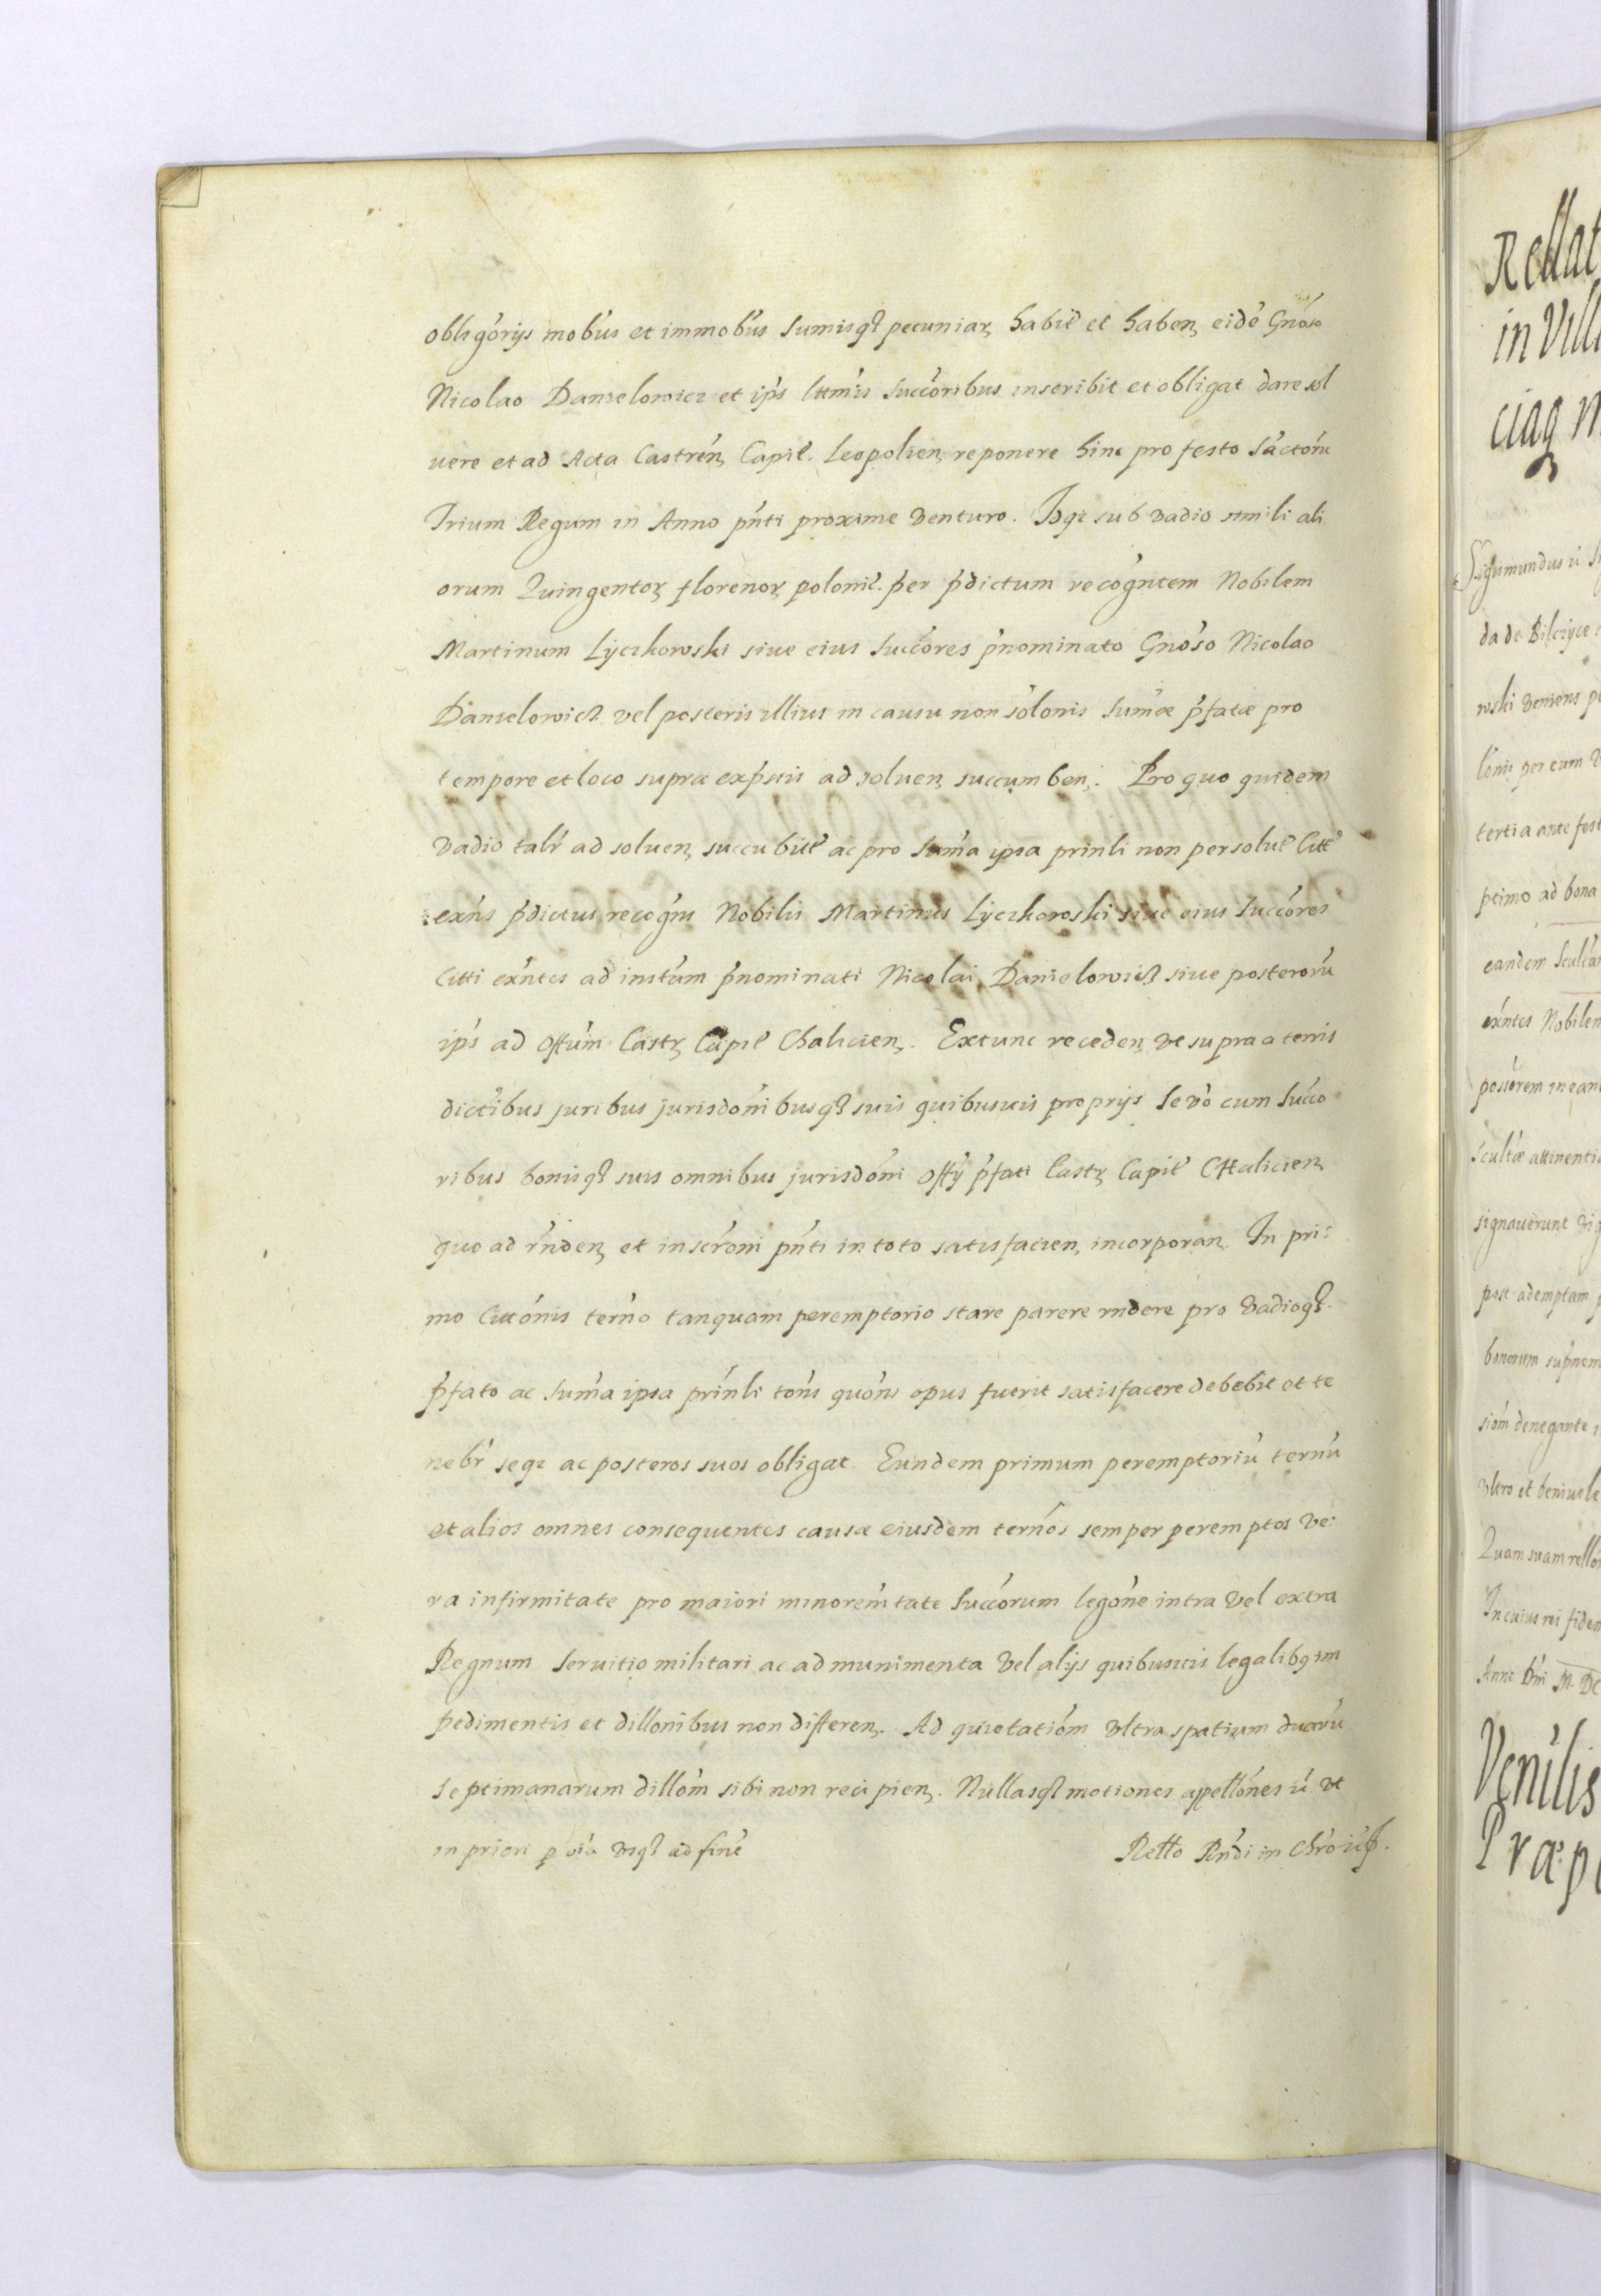 obligorijs mobus et immobus sumisq3 pecuniarz habit et habenz eide Gnoso
Nicolao Danielowicz et ips lttmis succoribus inscribit et obligat dare sol
uere et ad Acta Castrenz Capit. Leopolienz reponere hinc pro festo Sactoru
Trium Regum in Anno pnti proxime venturo. Idqz sub vadio simili ali
orum Quingentorz florenorz polonic. per pdictum recogntem Nobilem
Martinum Lyczkowski siue eius succores pnominato Gnoso Nicolao
Danielowicz vel posteris illius in causu non solonis sumæ pfatæ pro
tempore et loco supra expssis ad soluenz succumbenz. Pro quo quidem
vadio talr ad soluenz succubite ac pro suma ipsa prinli non persolut Citt
exns pdictus recogns Nobilis Martinus Lyczkowski siue eius succores
Citti exntes ad instam pnominati Nicolai Danielowicz siue posteroru
ips ad offum Castrz Capit Halicienz. Extunc recedenz ut supra a terris
dictibus juribus jurisdonibusq3 suis quibusuis proprijs se vo cum succo
ribus bonisq3 suis omnibus jurisdoni offy pfati Castrz Capit Halicienz
quo ad rndenz et inscroni pnti in toto satisfacienz incorporanz. In pri:
mo Cittonis terno tanquam peremptorio stare parere rndere pro vadioq3
pfato ac suma ipsa prinli tons quons opus fuerit satisfacere debebit et te
nebr seqz ac posteros suos obligat. Eundem primum peremptoriu ternu
et alios omnes consequentes causæ eiusdem ternos semper peremptos ve:
ra infirmitate pro maiori minoremtate succorum legone intra vel extra
Regnum seruitio militari ac ad munimenta vel alijs quibusuis legalibq im
pedimentis et dillonibus non differenz. Ad quietatiom ultra spatium duaru
septimanarum dillom sibi non recipienz. Nullasq3 motiones appellones ii ut
in priori p via usq3 ad fine
Rello Rndi in Chro
Rellat
in Vill
ciaq
Sigismundus ii
da de Bilczyce
wski veniens
per eum
tertia ante fest
ptimo ad bona
eandem
exntes Nobilem
possorem in ean
attinentia
signauerunt
post ademptam
bonorum supnom
siom denegante
ultro et beniuole
Quam suam rello
In cuius rei fidem
Anno Dni M. DC
Venilis
Præp